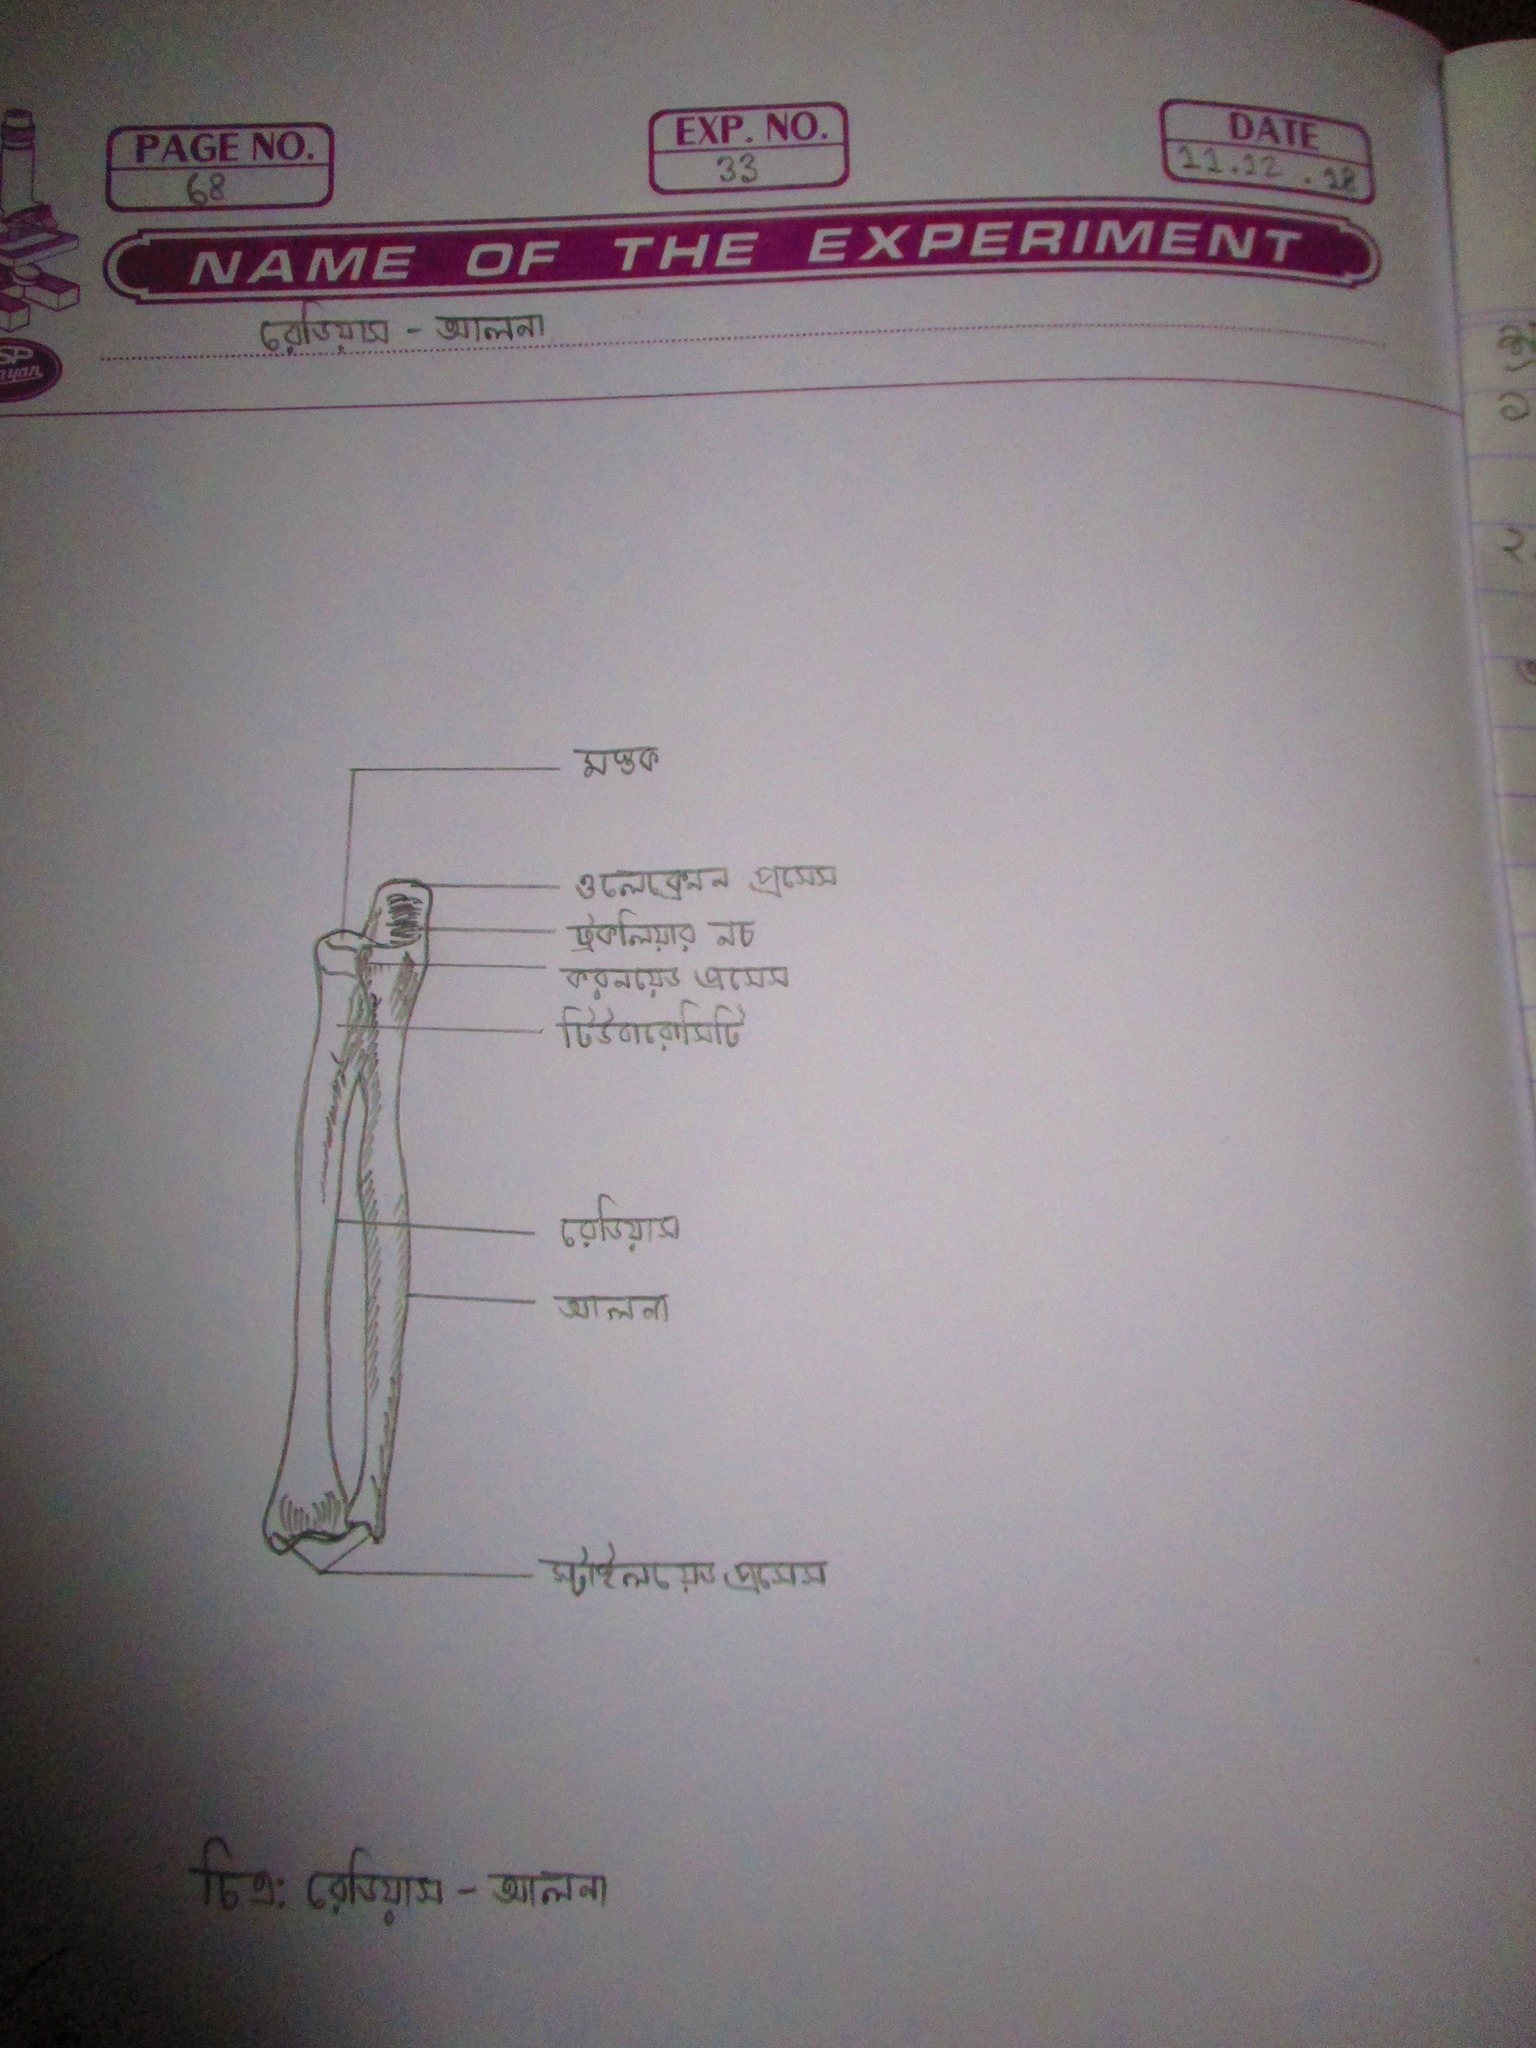 PAGE NO.
68
EXP. NO.
33
DATE
11.12.18
NAME OF THE EXPERIMENT
রেডিয়াস - আলনা
SP
মস্তক
ওলেক্রেনন প্রসেস
ট্রকলিয়ার নচ
করনয়েড প্রসেস
টিউবারোসিটি
রেডিয়াস
আলনা
স্টাইলয়েড প্রসেস
চিত্র: রেডিয়াস - আলনা